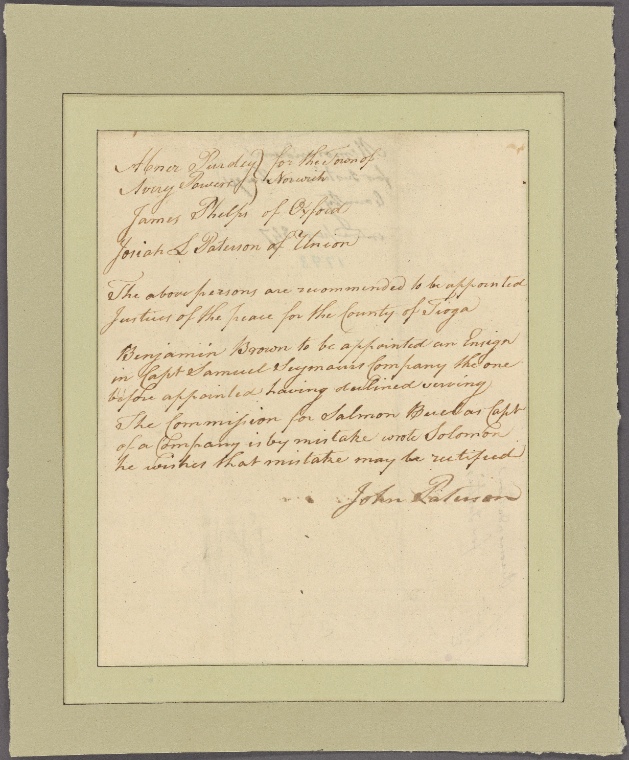 Abner Purdey } for the Town of
Avery Powers } Norwich
James Phelps of Oxford
Josiah L Paterson of Union
The above persons are recommended to be appointed
Justices of the peace for the County of Tioga
Benjamin Brown to be appointed an Ensign
in Capt Samuel Seymours Company the one
before appointed having declined serving
The Commission for Salmon Buel as Capt
of a Company is by mistake wrote Solomon
he wishes that mistake may be rectified
John Paterson
1793